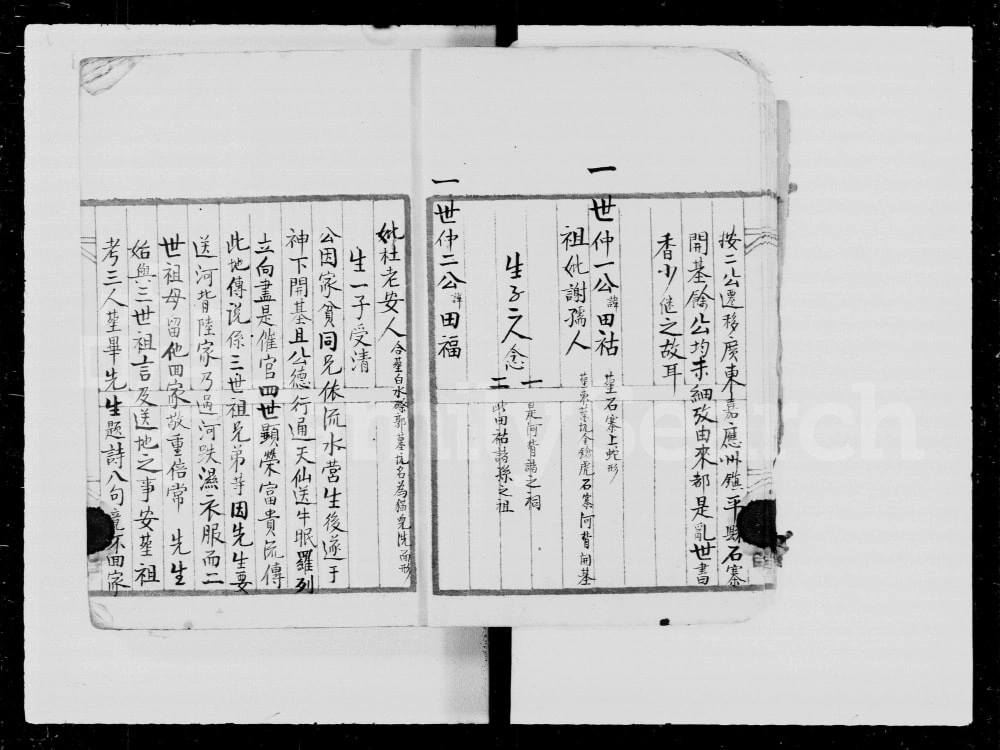 按二公遷移廣東嘉應州鎮平縣石寨
開基餘公均未細攷由來都是亂世書
香少継之故耳
一世仲一公諱田祜 葬石寨上蛇形
祖妣謝孺人 石寨河背開基
生子二人念
一是河背諸之祠
二田祜諸孫之祖
一世仲二公諱田福
妣杜老安人 合葬白水 郭墓坑名為貓兒洗面形
生一子受清
公因家貧同兄依流水营生後遂于
神下開基且公德行通天仙送牛眠羅列
立向盡是催官四世顯榮富貴流傳
此地傳说係三世祖兄弟等因先生要
送河背陸家乃過河跌濕衣服而二
世祖母留他回家敬重倍常 先生
始與三世祖言及送地之事安葬祖
考三人葬畢先生題詩八句竟不回家
FamilySearch